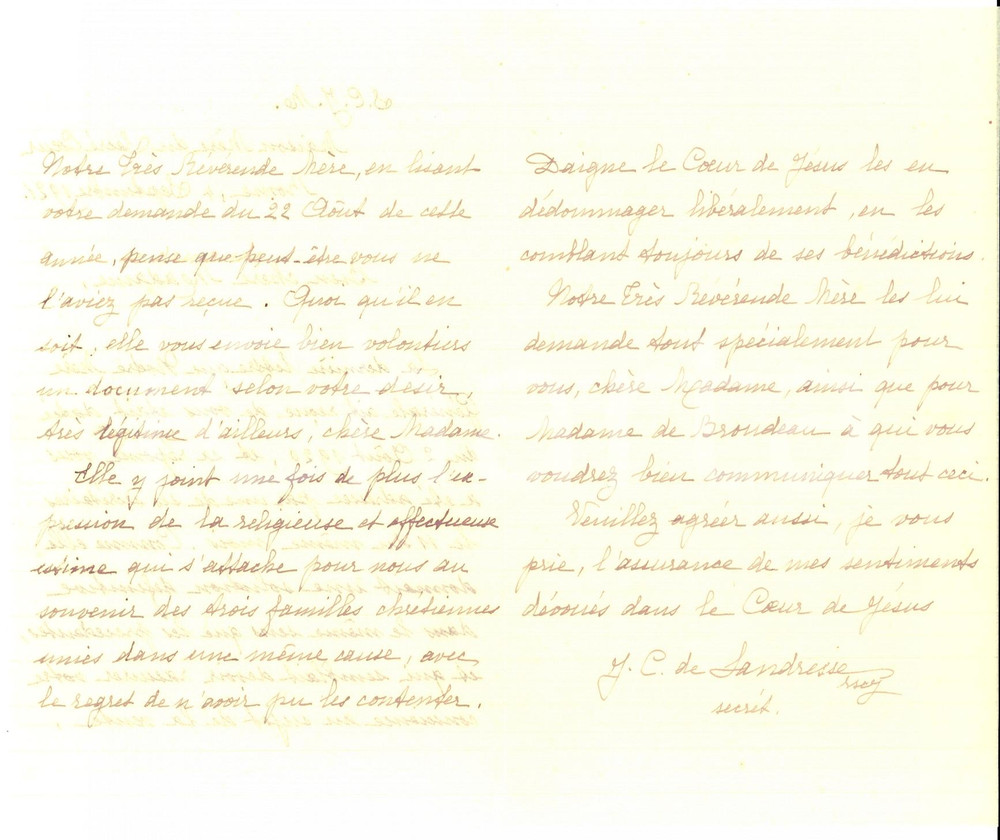 Notre Très Révérende Mère, en lisant
votre demande du 22 Août de cette
année, pense que peut-être vous ne
l'aviez pas reçue. Quoi qu'il en
soit, elle vous envoie bien volontiers
un document selon votre désir,
très légitime d'ailleurs, chère Madame.
Elle y joint une fois de plus l'ex-
pression de la religieuse et affectueuse
estime qui s'attache pour nous au
souvenir des trois familles chrétiennes
unies dans une même cause, avec
le regret de n'avoir pu les contenter.
Daigne le Cœur de Jésus les en
dédommager libéralement, en les
comblant toujours de ses bénédictions.
Notre Très Révérende Mère les lui
demande tout spécialement pour
vous, chère Madame, ainsi que pour
Madame de Broudeau à qui vous
voudrez bien communiquer tout ceci.
Veuillez agréer aussi, je vous
prie, l'assurance de mes sentiments
dévoués dans le Cœur de Jésus
J. C. de Landresse
rscj
secrét.